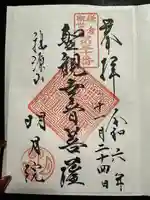 奉拝
令和六年
十一月二十四日
聖観世音菩薩
福源山
明月院